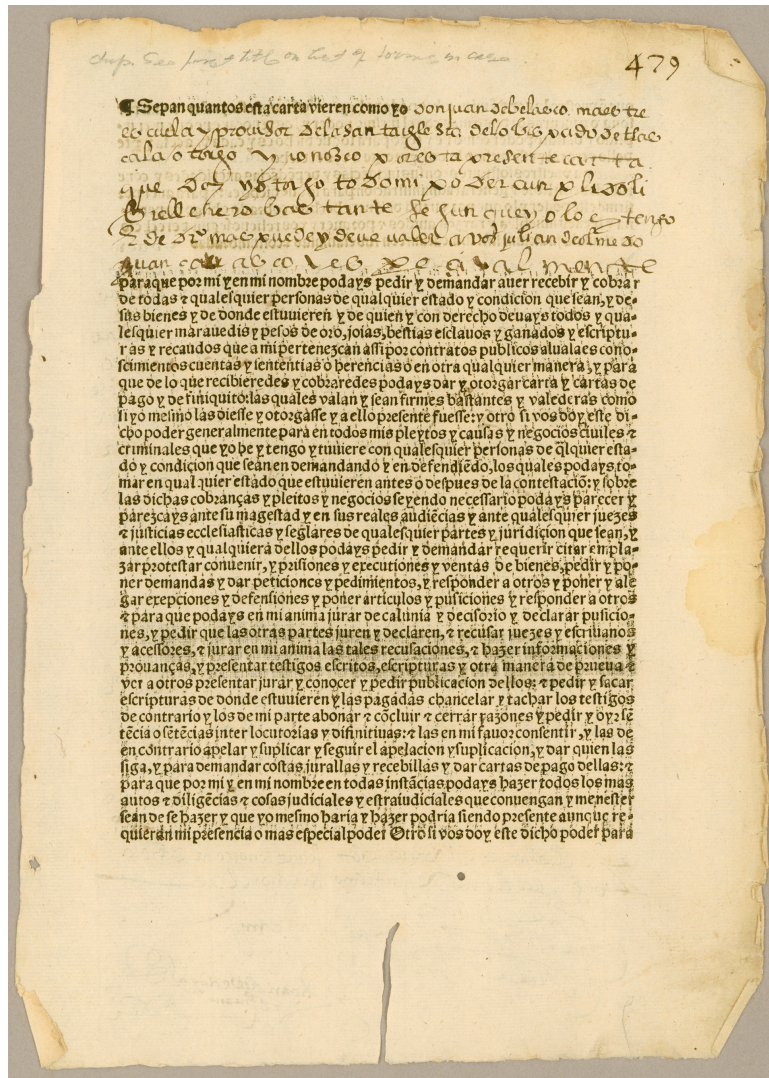 479
¶ Sepan quantos esta carta vieren como yo don juan de belasco maestre
escuela y provisor de la santa iglesia del obispado de tlas
cala otorgo y conozco por esta presente carta
que doy y otorgo todo mi poder cunplido li
bre llenero bastante segun que yo lo e y tengo
de dr̄o mas puede y deve valer a vos julian de olmedo
juan
para que por mi y en mi nombre podays pedir y demandar auer recebir y cobrar
de todas ⁊ qualesquier personas de qualquier estado y condicion que sean, y de-
sus bienes y de donde estuuieren y de quien y con derecho deuays todos y qua-
lesquier marauedis y pesos de oro, joias, bestias esclauos y ganados y escriptu-
ras y recaudos que a mi pertenezcan assi por contratos publicos alualaes cono-
scimientos cuentas y sententias o herencias o en otra qualquier manera, y para
que de lo que recibieredes y cobraredes podays dar y otorgar carta y cartas de
pago y de finiquito: las quales valan y sean firmes bastantes y valederas como
si yo mesmo las diesse y otorgasse y a ello presente fuesse: y otro si vos doy este di-
cho poder generalmente para en todos mis pleytos y causas y negocios ciuiles ⁊
criminales que yo he y tengo y tuuiere con qualesquier personas de q̄lquier esta-
do y condicion que sean en demandando y en defendiēdo, los quales podays to-
mar en qualquier estado que estuuieren antes o despues de la contestaciō: y sobre
las dichas cobranças y pleitos y negocios seyendo necessario podays parecer y
parezcays ante su magestad y en sus reales audiēcias y ante qualesquier juezes
⁊ justicias ecclesiasticas y seglares de qualesquier partes y juridicion que sean, y
ante ellos y qualquiera dellos podays pedir y demandar requerir citar empla-
zar protestar conuenir, y prisiones y executiones y ventas de bienes, pedir y po-
ner demandas y dar peticiones y pedimientos, y responder a otros y poner y ale
gar exepciones y defensiones y poner articulos y pusiciones y responder a otros
⁊ para que podays en mi anima jurar de calunia y decisorio y declarar pusicio-
nes, y pedir que las otras partes juren y declaren, ⁊ recusar juezes y escriuanos
y acessores, ⁊ jurar en mi anima las tales recusaciones, ⁊ hazer informaciones y
prouanças, y presentar testigos escritos, escripturas y otra manera de prueua ⁊
ver a otros presentar jurar y conocer y pedir publicacion dellos: ⁊ pedir y sacar
escripturas de donde estuuieren y las pagadas chancelar y tachar los testigos
de contrario y los de mi parte abonar ⁊ cōcluir ⁊ cerrar razones y pedir y oyr sē
tēcia o sētēcias inter locutorias y difinitiuas: ⁊ las en mi fauor consentir, y las de
en contrario apelar y suplicar y seguir el apelacion y suplicacion, y dar quien las
siga, y para demandar costas jurallas y recebillas y dar cartas de pago dellas: ⁊
para que por mi y en mi nombre en todas instācias podays hazer todos los mas
autos ⁊ diligēcias ⁊ cosas judiciales y estraiudiciales que conuengan y menester
sean de se hazer y que yo mesmo haria y hazer podria siendo presente aunque re-
quieran mi presencia o mas especial poder Otro si vos doy este dicho poder para